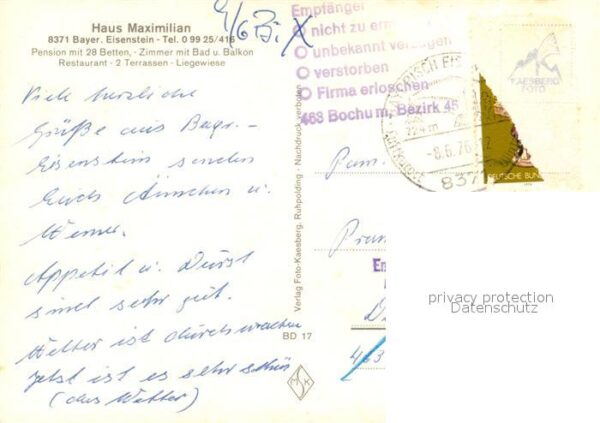 Haus Maximilian
8371 Bayer. Eisenstein - Tel. 0 99 25/416
Pension mit 28 Betten, - Zimmer mit Bad u. Balkon
Restaurant - 2 Terrassen - Liegewiese
Viele herzliche
Grüße aus Bayr. -
Eisenstein senden
Euch Ännchen u.
Werner.
Appetit u. Durst
sind sehr gut.
Wetter ist durchwachsen
jetzt ist es sehr schön
(das Wetter)
Verlag Foto-Kaesberg, Ruhpolding - Nachdruck verboten
BD 17
Empfänger
nicht zu erm
unbekannt verzogen
verstorben
Firma erloschen
463 Bochum, Bezirk 45
724 m
-8.6.76
8371
KAESBERG
FOTO
DEUTSCHE BUN
Fam.
463
privacy protection
Datenschutz